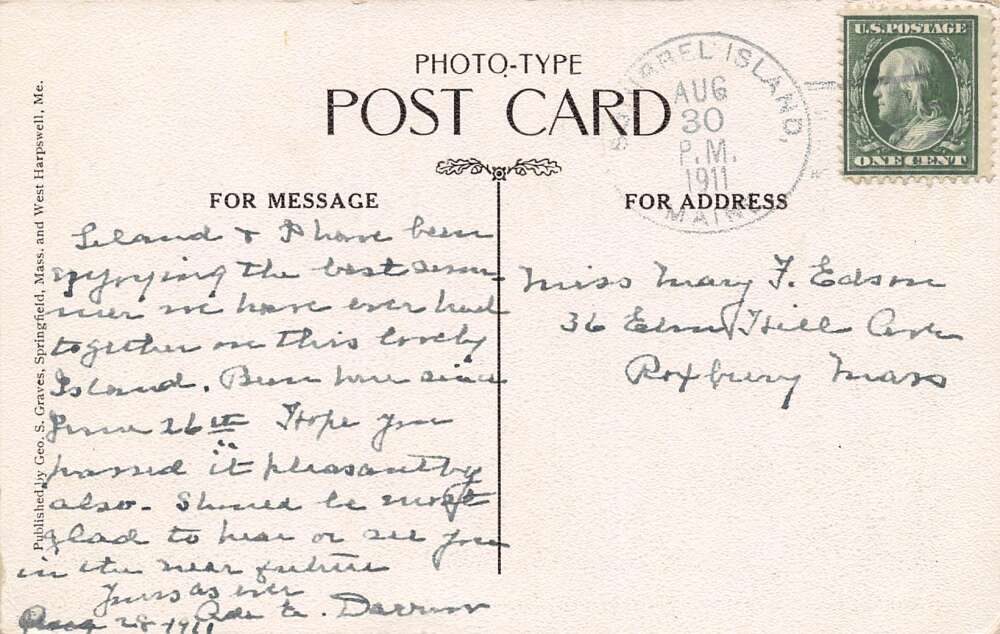 PHOTO-TYPE
POST CARD
FOR MESSAGE
FOR ADDRESS
U.S. POSTAGE
ONE CENT
SQUIRREL ISLAND,
AUG
30
P.M.
1911
MAINE
Published by Geo. S. Graves, Springfield, Mass. and West Harpswell, Me.
Leland & I have been
enjoying the best sum-
mer we have ever had
together on this lovely
Island. Been here since
June 26th Hope you
passed it pleasantly
also. Should be most
glad to hear or see you
in the near future
Yours as ever
Ada E.
Aug 28 1911
Miss Mary F. Edson
36 Elm Hill Ave
Roxbury Mass